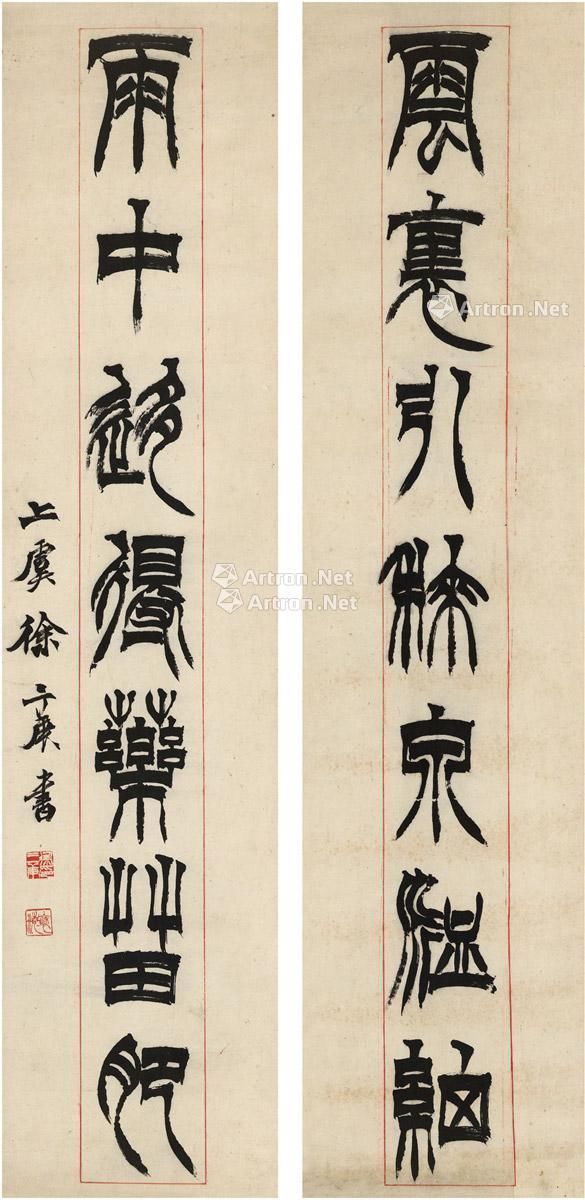 雲裏引來泉衇細
雨中迻得藥苗肥
上虞徐三庚書
Artron.Net
Artron.Net
Artron.Net